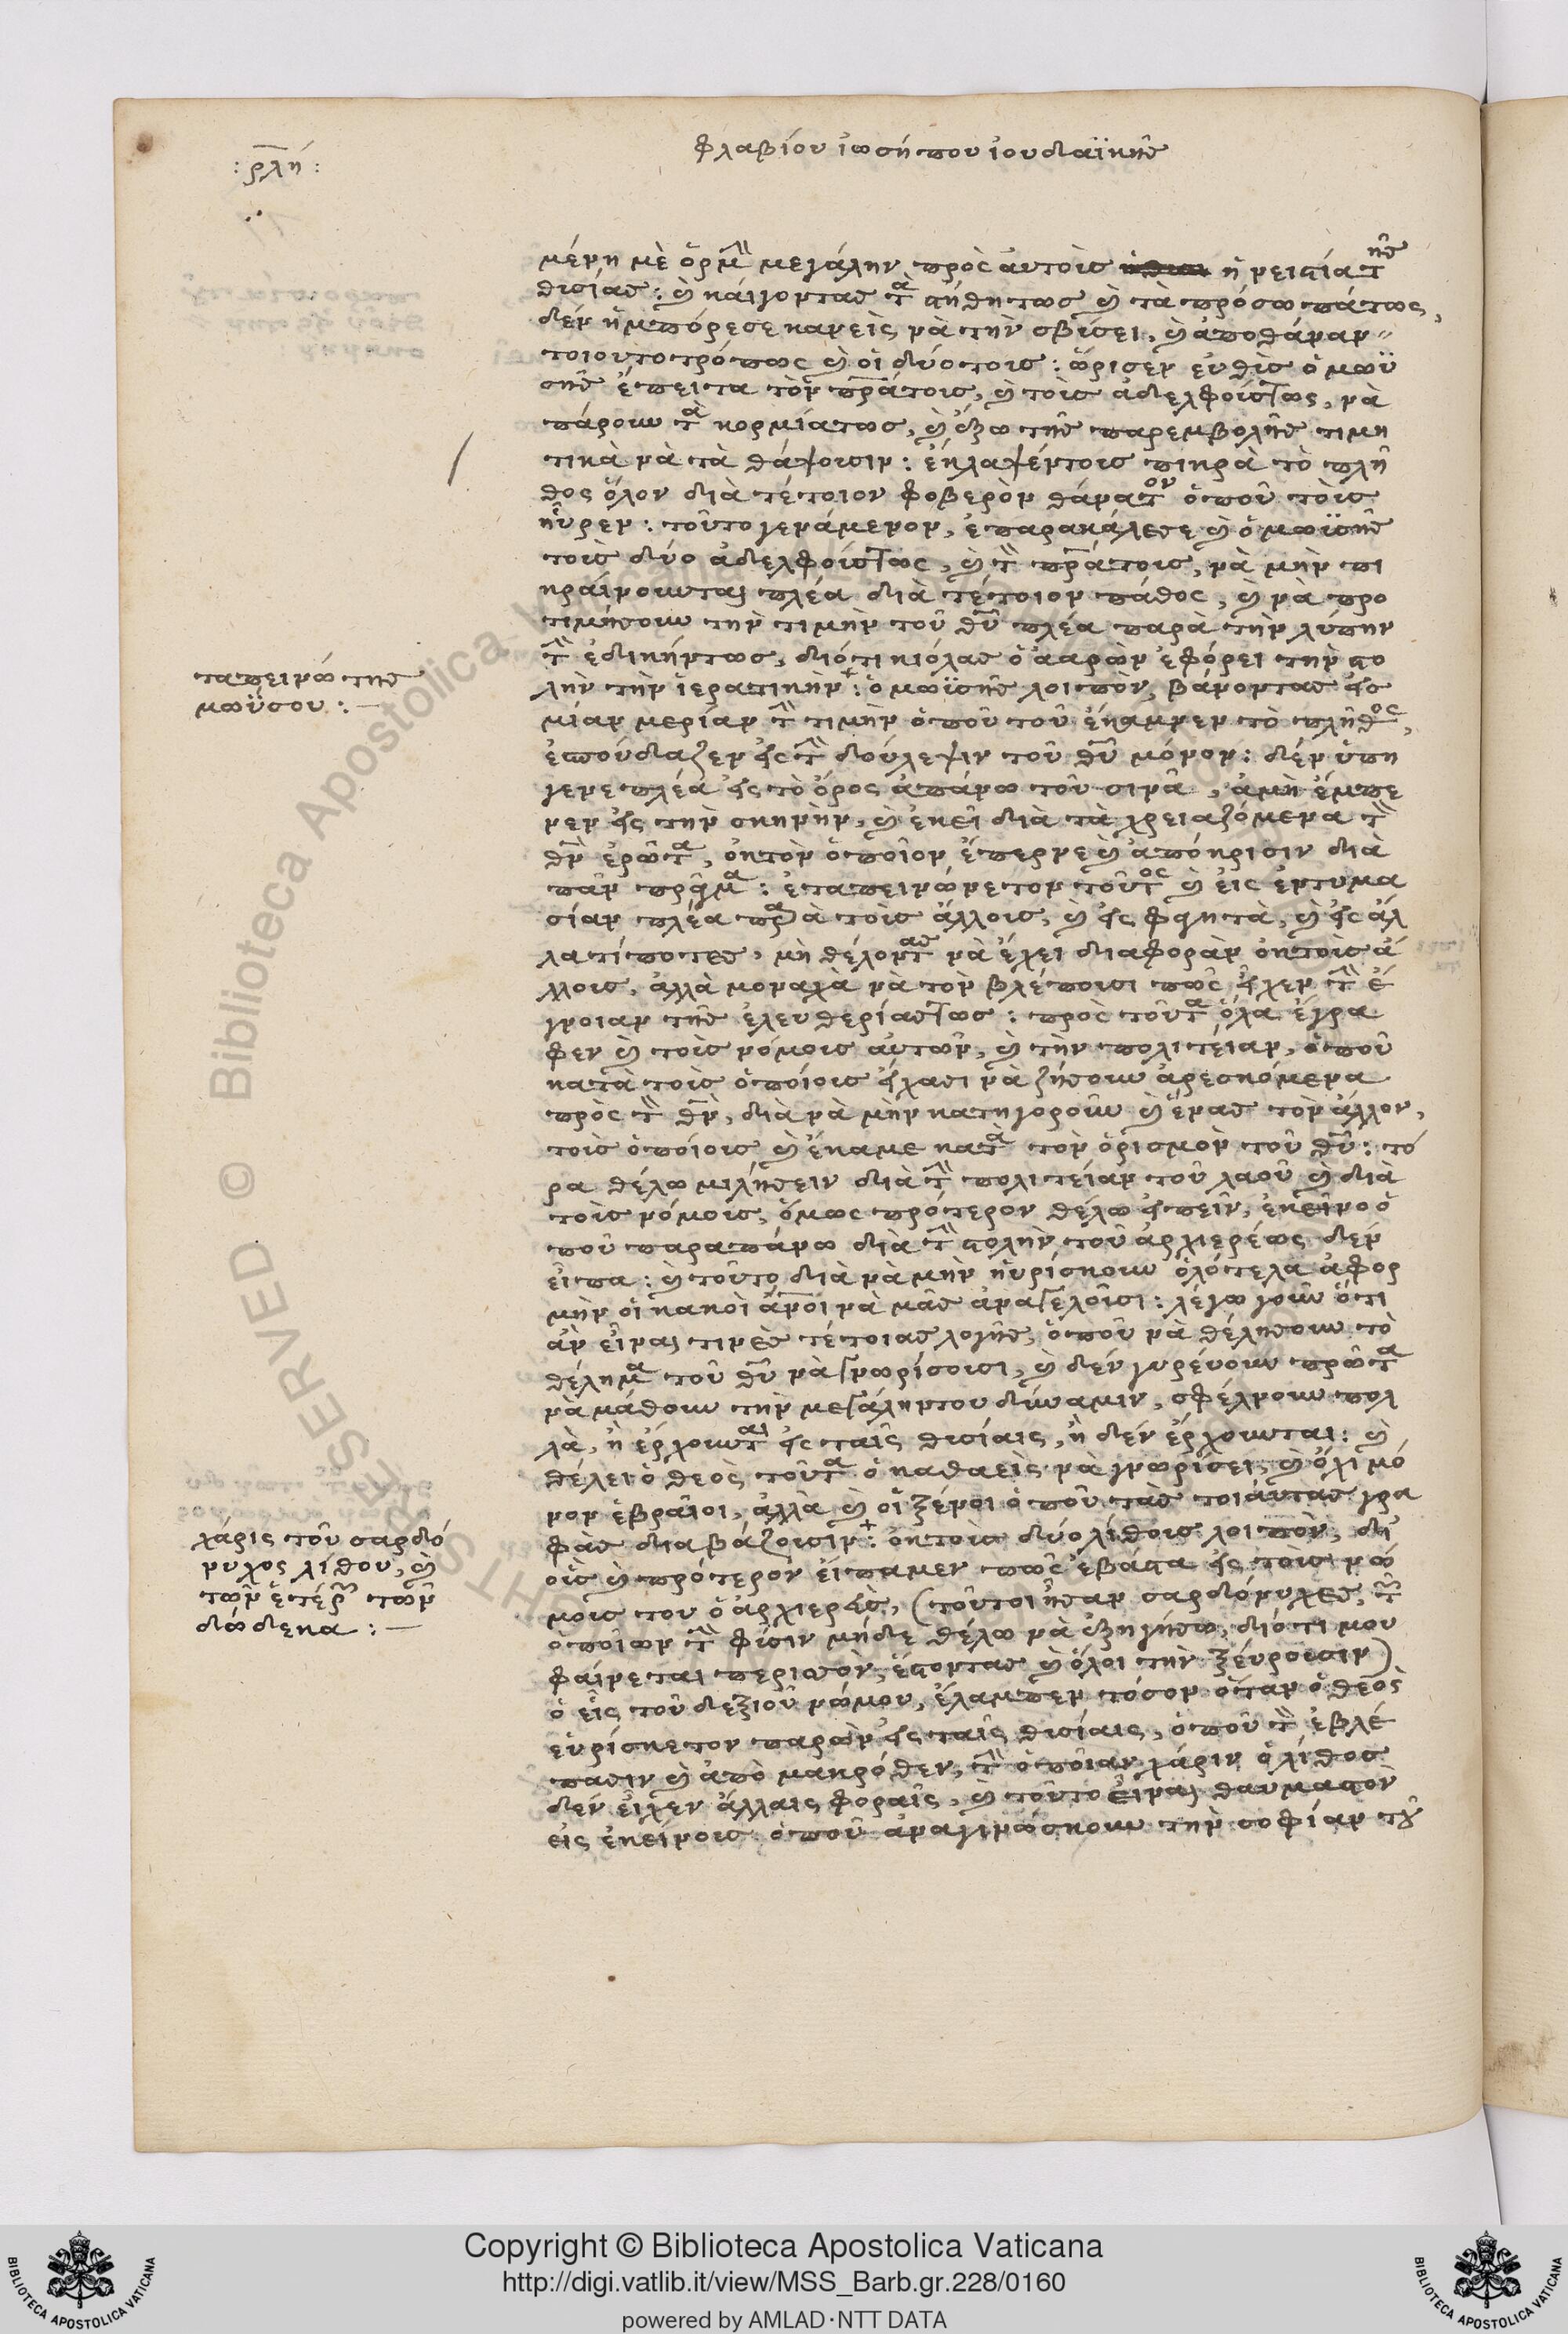 :ρλή:
φλαβίου ἰωσήπου ἰουδαϊκῆς
μένη μὲ ὁρμὴν μεγάλην πρὸς αὐτοὺς ἡ νεισία τῆς
θυσίας: καὶ καίγοντας τὰ στήθητως καὶ τὰ πρόσωπάτως,
δὲν ἠμπόρεσε κανεὶς νὰ τὴν σβύσει, καὶ ἀποθάναν
τοιουτοτρόπως καὶ οἱ δύοτους: ὥρισεν εὐθὺς ὁ μωϋ
σῆς ἔπειτα τὸν πράτους, καὶ τοὺς ἀδελφούστως, νὰ
πάρουν τὰ κορμίατως, καὶ ἔξω τῆς παρεμβολῆς τιμη
τικὰ νὰ τὰ θάψουσιν: ἐκλαψέντους πικρὰ τὸ πλῆ
θος ὅλον διὰ τέτοιον φοβερὸν θάνατον ὁποῦ τοὺς
ηὗρεν: τοῦτο γενάμενον, ἐπαρακάλεσε καὶ ὁ μωϋσῆς
τοὺς δύο ἀδελφούστως, καὶ τὸν πράτους, νὰ μὴν πι
κραίνουνται πλέα διὰ τέτοιον πάθος, καὶ νὰ προ
τιμήσουν τὴν τιμὴν τοῦ θῦ πλέα παρὰ τὴν λύπην
τὴν ἐδικήντως, διότι κιόλας ὁ ἀαρὼν ἐφόρει τὴν στο
λὴν τὴν ἱερατικήν: ὁ μωϋσῆς λοιπὸν, βάνοντας εἰς
μίαν μερίαν τὴν τιμὴν ὁποῦ τοῦ ἔκαμνεν τὸ πλῆθος,
ἐσπούδαζεν εἰς τὴν δούλεψιν τοῦ θῦ μόνον: δὲν ὑπή
γενε πλέα εἰς τὸ ὄρος ἀπάνω τοῦ σινᾶ, ἀμὴ ἔμπε
νεν εἰς τὴν σκηνὴν, καὶ ἐκεῖ διὰ τὰ χρειαζόμενα τὸν
θν ἐρῶτα, ἐκ τὸν ὁποῖον ἔπερνε καὶ ἀπόκρισιν διὰ
πᾶν πρᾶγμα: ἐταπεινώνετον τοῦτος καὶ εἰς ἐντυμα
σίαν πλέα παρὰ τοὺς ἄλλους, καὶ εἰς φαητὰ, καὶ εἰς ἄλ
λα τίποτες, μὴ θέλοντας νὰ ἔχει διαφορὰν ἐκ τοὺς ἄ
λλους, ἀλλὰ μοναχὰ νὰ τὸν βλέπουσι πῶς εἶχεν τὴν ἔ
γνοιαν τῆς ἐλευθερίαστως: πρὸς τοῦτα ὅλα ἔγρα
φεν καὶ τοὺς νόμους αὐτῶν, καὶ τὴν πολιτείαν, ὁποῦ
κατὰ τοὺς ὁποίους εἴχασι νὰ ζήσουν ἀρεσκόμενα
πρὸς τὸν θν, διὰ νὰ μὴν κατηγοροῦν καὶ ἕνας τὸν ἄλλον,
τοὺς ὁποίους καὶ ἔκαμε κατὰ τὸν ὁρισμὸν τοῦ θῦ: τό
ρα θέλω μιλήσειν διὰ τὴν πολιτείαν τοῦ λαοῦ καὶ διὰ
τοὺς νόμους, ὅμως πρότερον θέλω εἰπεῖν, ἐκεῖνο ὁ
ποῦ παραπάνω διὰ τὴν στολὴν τοῦ ἀρχιερέως δὲν
εἶπα: καὶ τοῦτο διὰ νὰ μὴν ηὑρίσκουν ὁλότελα ἀφορ
μὴν οἱ κακοὶ ἄνοι νὰ μᾶς ἀναγελοῦσι: λέγω γοῦν ὅτι
ἂν εἶναι τινὲς τέτοιας λογῆς, ὁποῦ νὰ θέλησουν τὸ
θέλημα τοῦ θῦ νὰ γνωρίσουσι, καὶ δὲν γυρεύουν πρῶτα
νὰ μάθουν τὴν μεγάλην του δύναμιν, σφέλνουν πολ
λὰ, ἢ ἔρχουνται εἰς ταῖς θυσίαις, ἢ δὲν ἔρχουνται: καὶ
θέλει ὁ θεὸς τοῦτα ὁ καθαεὶς νὰ γνωρίσει, καὶ ὄχι μό
νον ἑβραῖοι, ἀλλὰ καὶ οἱ ξένοι ὁποῦ τὰς τοιαύτας γρα
φὰς διαβάζουσιν: ἐκ τοὺς δύο λίθους λοιπὸν, δι᾽
οὓς καὶ πρότερον εἴπαμεν πῶς ἐβάστα εἰς τοὺς νώ
μους του ὁ ἀρχιερεὺς, (τοῦτοι ἦσαν σαρδόνυχες, τῶν
ὁποίων τὴν φύσιν μήδε θέλω νὰ ἐξηγήσω, διότι μου
φαίνεται περισσὸν, ἔστοντας καὶ ὅλοι τὴν ξεύρουσιν)
ὁ εἷς τοῦ δεξιοῦ νώμου, ἔλαμπεν τόσον ὅταν ὁ θεὸς
εὑρίσκετον παρὼν εἰς ταῖς θυσίαις, ὁποῦ τὸν ἐβλέ
πασιν καὶ ἀπὸ μακρόθεν, τὴν ὁποίαν χάριν ὁ λίθος
δὲν εἶχεν ἄλλαις φοραῖς, καὶ τοῦτο εἶναι θαυμαστὸν
εἰς ἐκείνους ὁποῦ ἀναγινώσκουν τὴν σοφίαν τοῦ
ταπεινώτης
μωϋσου:—
χάρις τοῦ σαρδό
νυχος λίθου, καὶ
τῶν ἑτέρων τῶν
δώδεκα:—
Copyright © Biblioteca Apostolica Vaticana
http://digi.vatlib.it/view/MSS_Barb.gr.228/0160
powered by AMLAD·NTT DATA
BIBLIOTECA APOSTOLICA VATICANA
BIBLIOTECA APOSTOLICA VATICANA